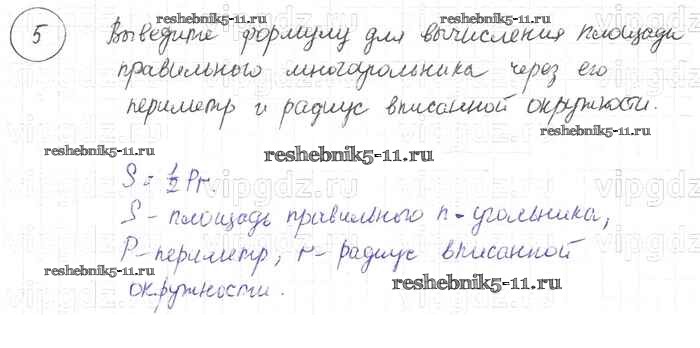 reshebnik5-11.ru
5 Выведите формулу для вычисления площади
правильного многоугольника через его
reshebnik5-11.ru
периметр и радиус вписанной окружности.
reshebnik5-11.ru
reshebnik5-11.ru
S = 1/2 Pr.
S - площадь правильного n-угольника,
P - периметр, r - радиус вписанной
reshebnik5-11.ru
reshebnik5-11.ru
окружности.